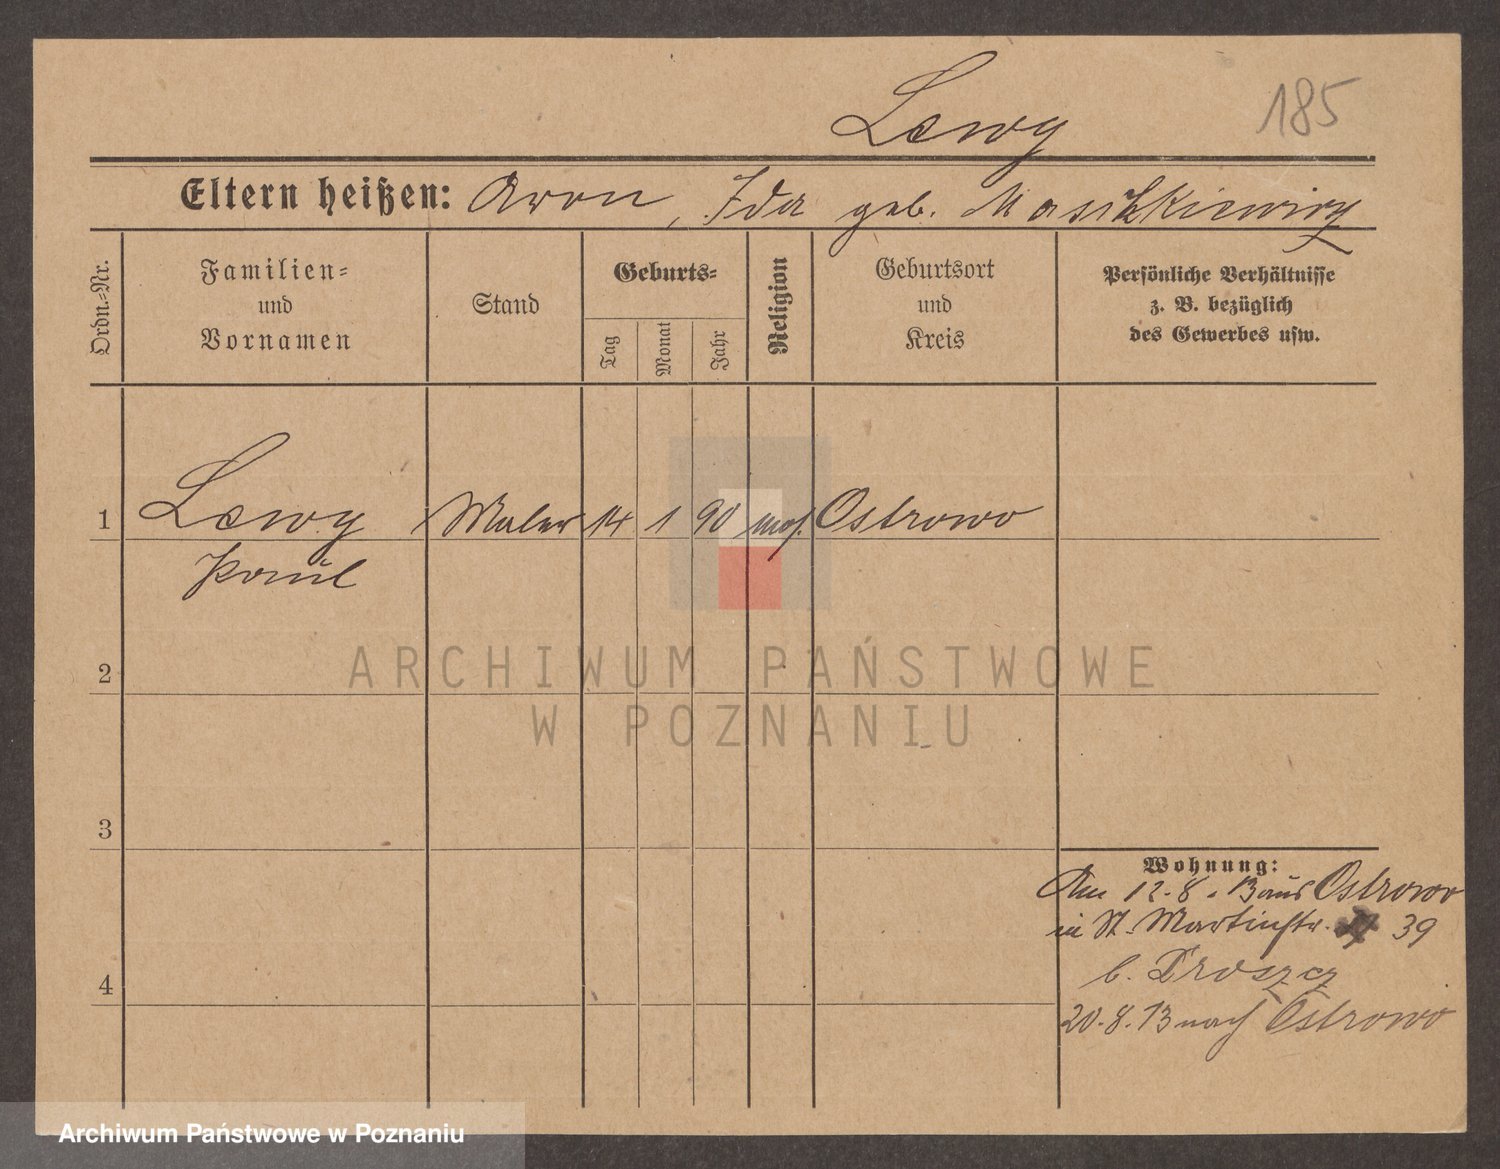 Lewy
185
Eltern heißen: Aron, Ida geb. Maschkiewicz
Ordn.-Nr.
Familien-
und
Vornamen
Stand
Geburts-
Tag
Monat
Jahr
Religion
Geburtsort
und
Kreis
Persönliche Verhältnisse
z. B. bezüglich
des Gewerbes usw.
1 Lewy Maler 14 1 90 mos. Ostrowo
Paul
2
3
4
Wohnung:
Am 12.8.13 aus Ostrowo
in St. Martinstr. 39
b. Droszcz
20.8.13 nach Ostrowo
ARCHIWUM PAŃSTWOWE
W POZNANIU
Archiwum Państwowe w Poznaniu